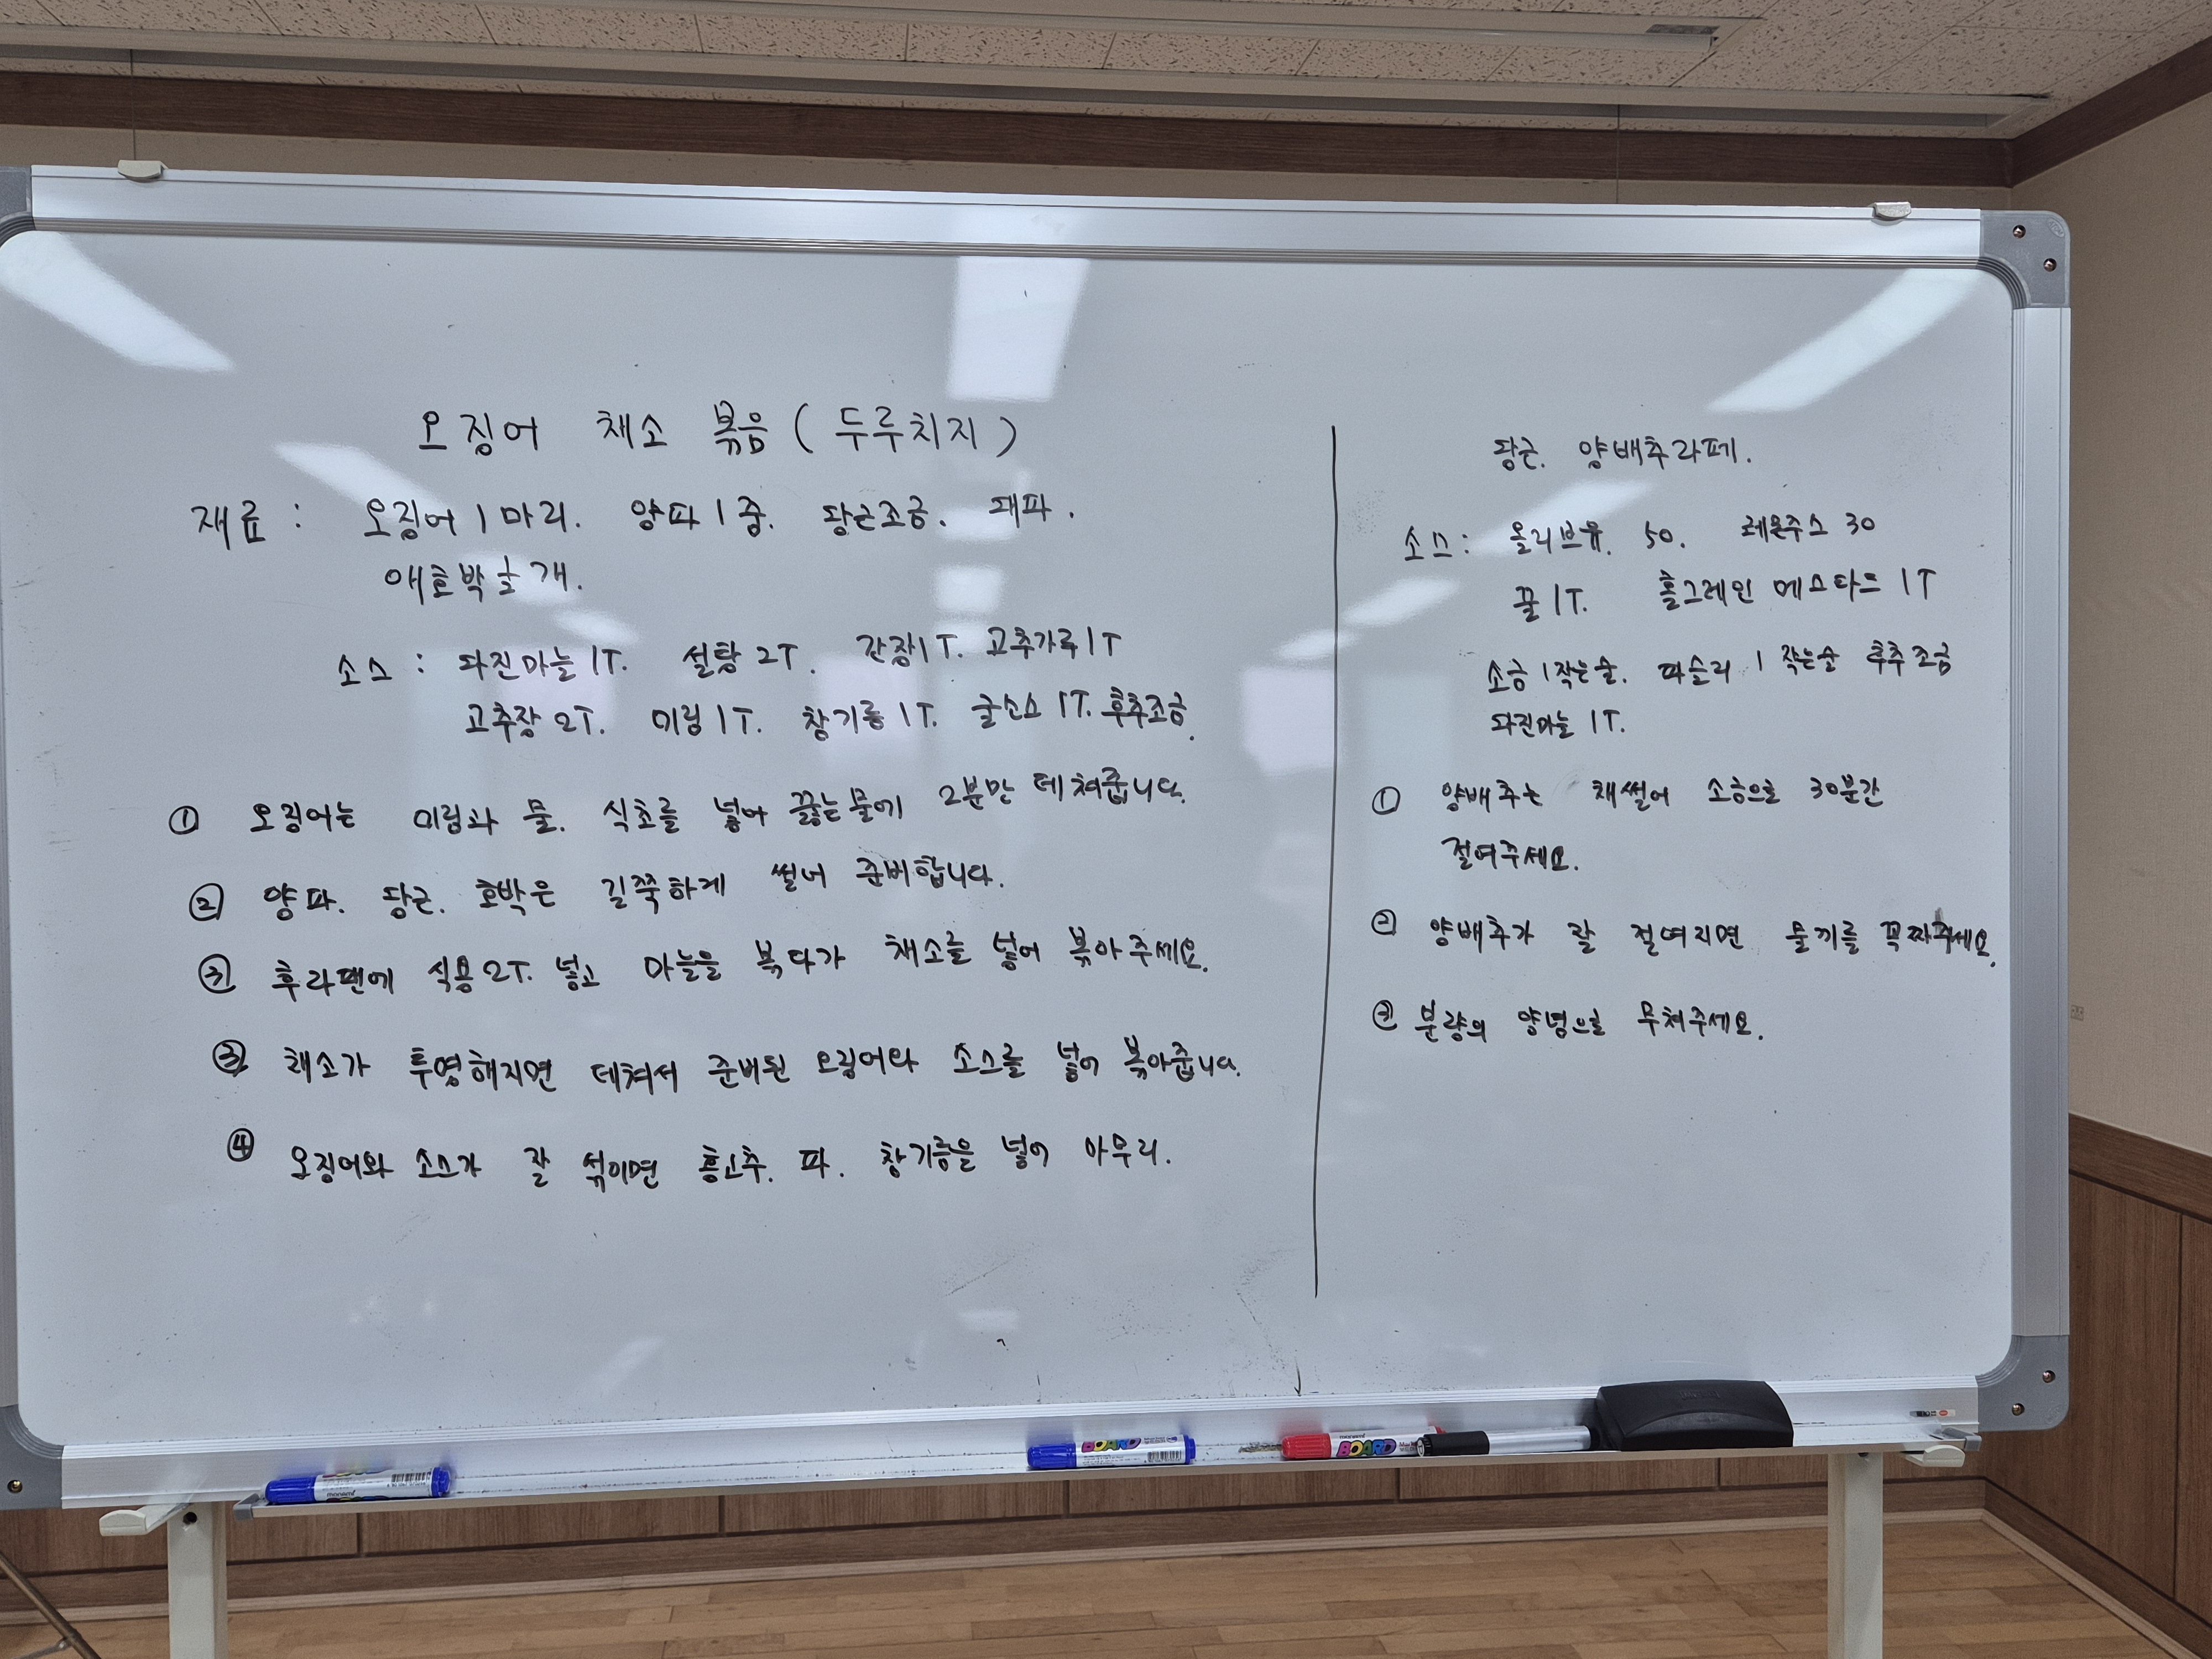 오징어 채소 볶음 ( 두루치지 )
재료 : 오징어 1마리. 양파 1중. 당근조금. 대파.
애호박 개.
소스 : 다진마늘 1T. 설탕 2T. 간장1T. 고추가루1T
고추장 2T. 미림 1T. 참기름 1T. 굴소스 1T. 후추조금.
① 오징어는 미림과 물. 식초를 넣어 끓는물에 2분만 데쳐줍니다.
② 양파. 당근. 호박은 길쭉하게 썰어 준비합니다.
③ 후라팬에 식용2T. 넣고 마늘을 볶다가 채소를 넣어 볶아주세요.
③ 채소가 투명해지면 데쳐서 준비된 오징어와 소스를 넣어 볶아줍니다.
④ 오징어와 소스가 잘 섞이면 홍고추. 파. 참기름을 넣어 마무리.
당근. 양배추라페.
소스 : 올리브유. 50. 레몬주스 30
꿀 1T. 홀그레인 메스타드 1T
소금 1작은술. 파슬리 1작은술 후추조금
다진마늘 1T.
① 양배추는 채썰어 소금으로 30분간
절여주세요.
② 양배추가 잘 절여지면 물끼를 꼭짜주세요.
분량의 양념으로 무쳐주세요.
BOARD
BOARD
monami
monami